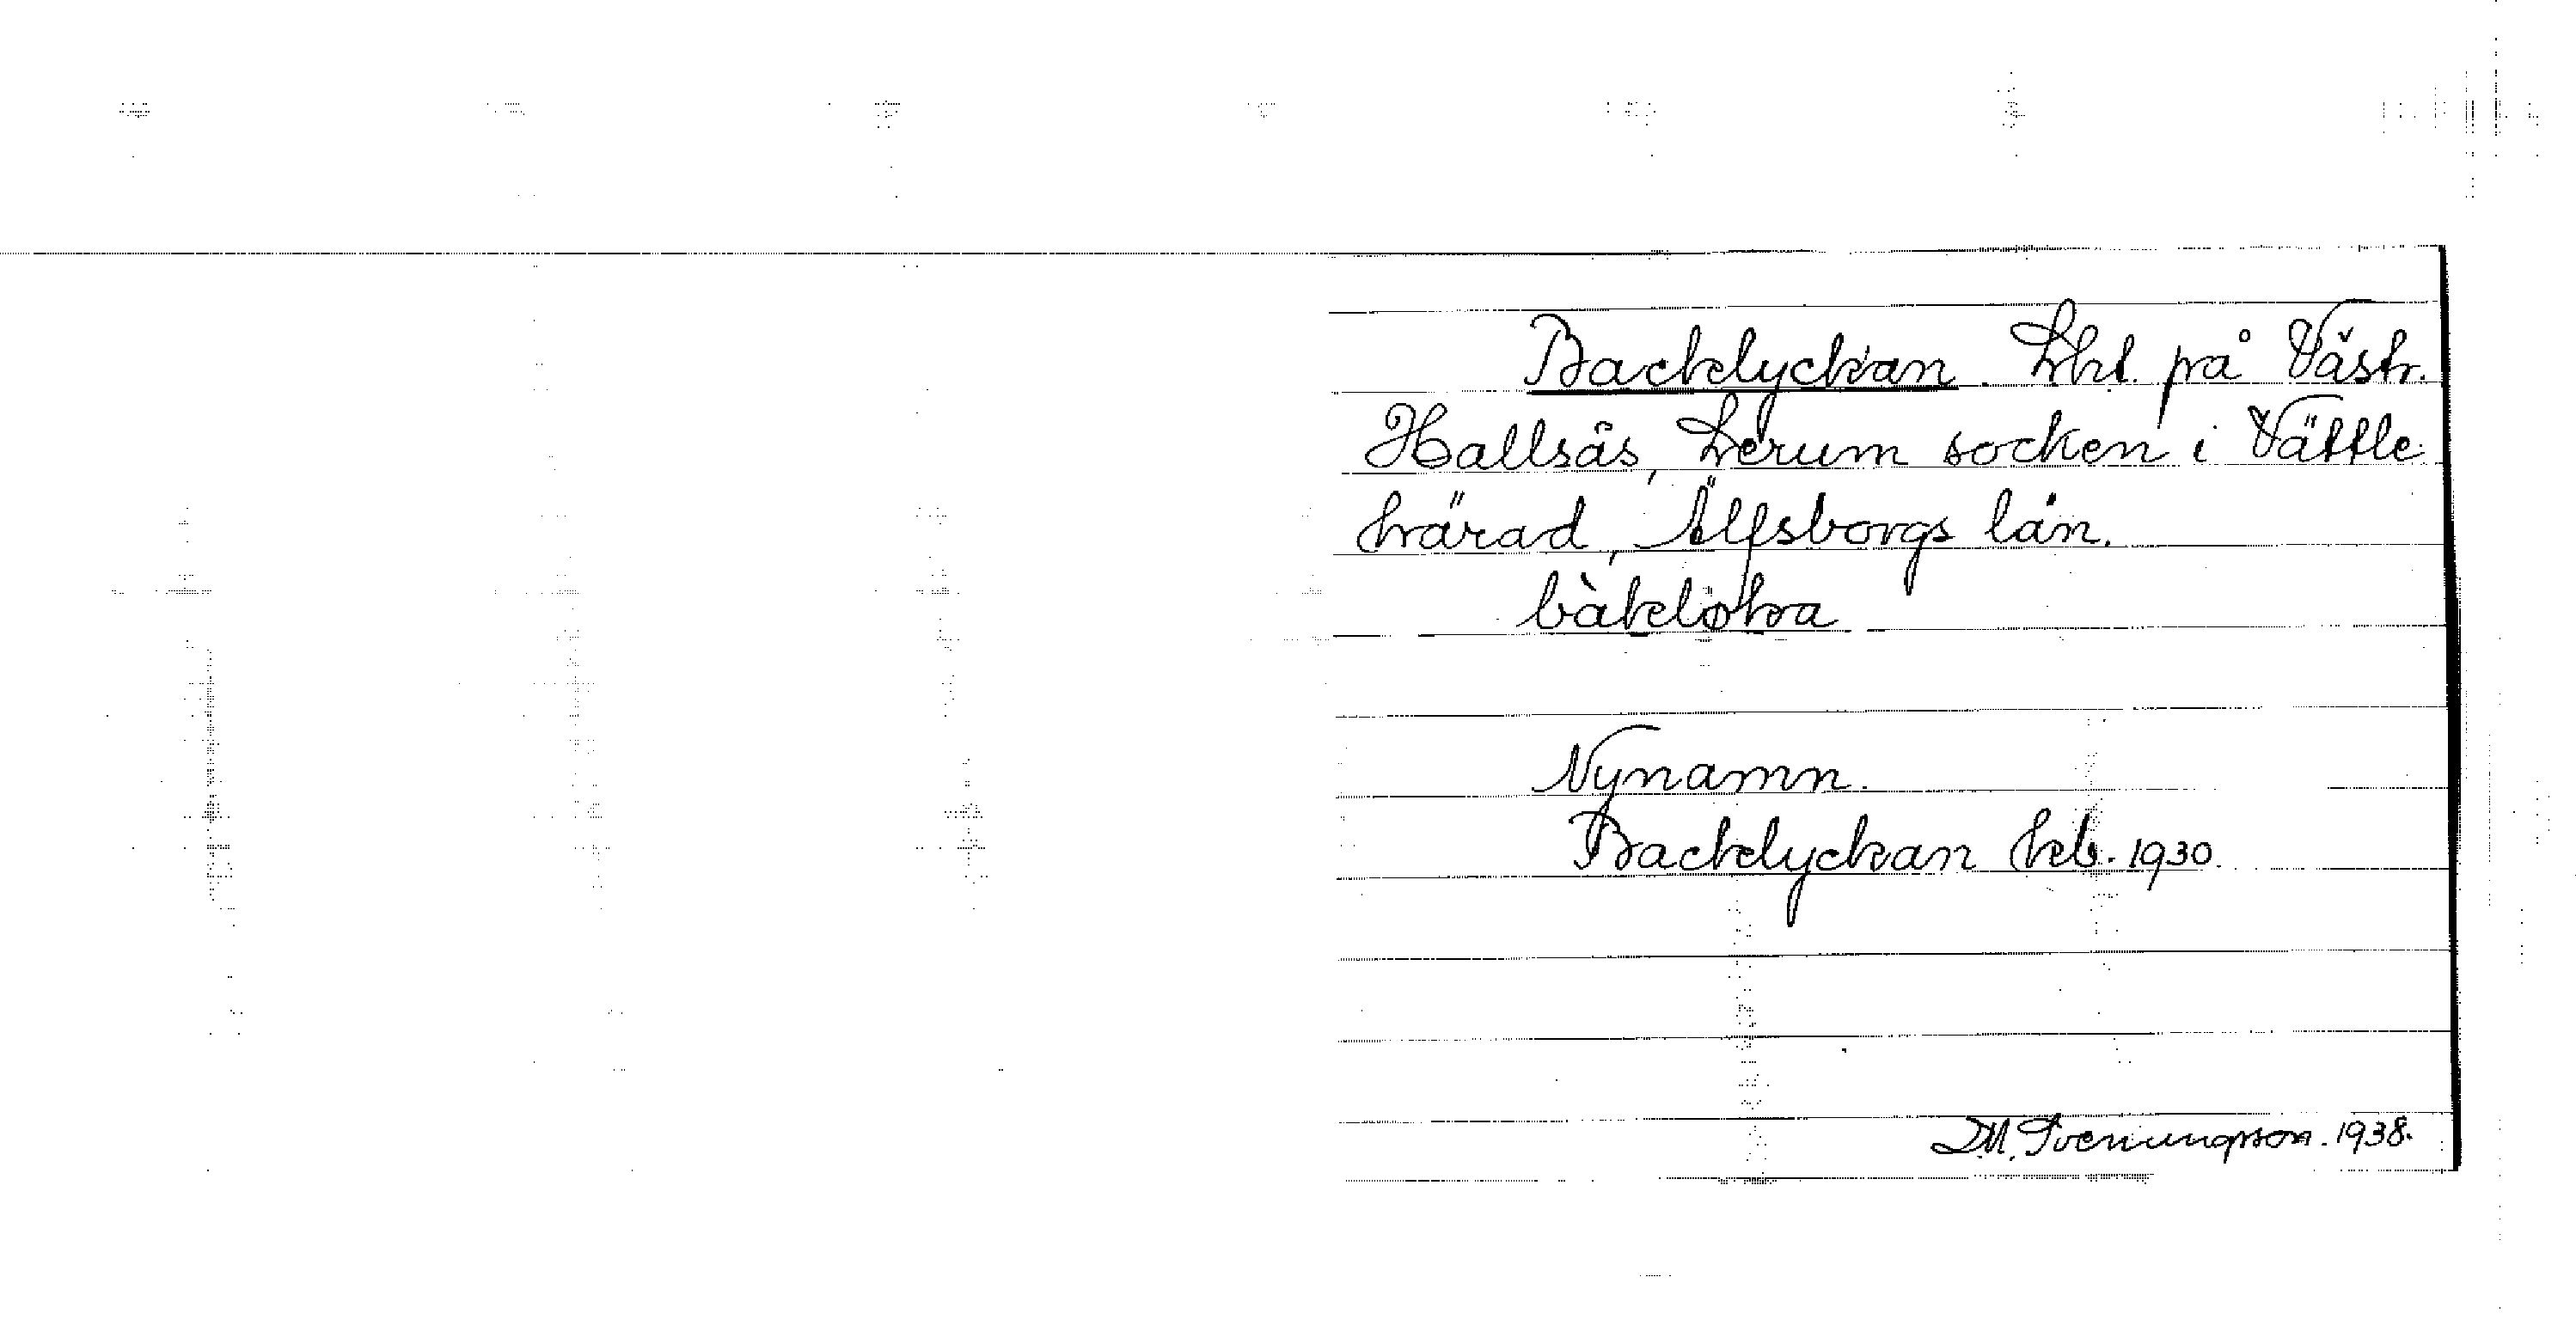 Backlyckan. Lht. på Västr.
Hallsås, Lerum socken i Vättle
härad, Älfsborgs län.
bàkeløka
Nynamn.
Backlyckan kb. 1930.
D.M. Svenungsson. 1938.